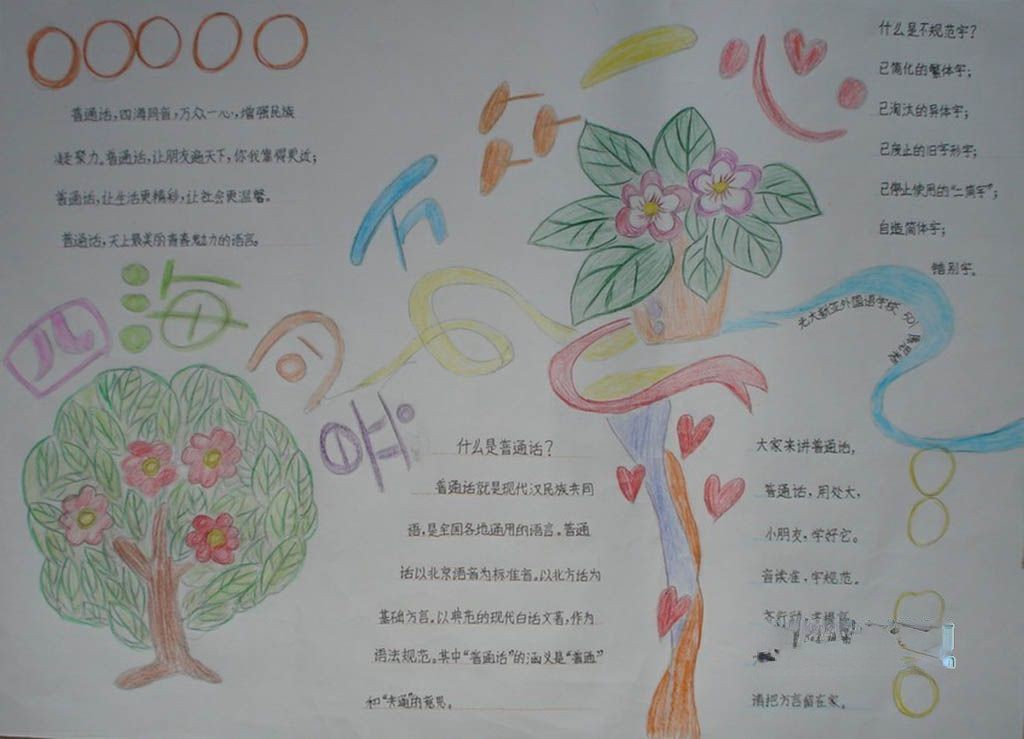 四海同音
万众一心
普通话,四海同音,万众一心,增强民族
凝聚力。普通话,让朋友遍天下,你我靠得更近;
普通话,让生活更精彩,让社会更温馨。
普通话,天上最美的青春魅力的语言。
什么是不规范字?
已简化的繁体字;
已淘汰的异体字;
已废止的旧字形字;
已停止使用的“二简字”;
自造简体字;
错别字。
光大新亚外国语学校
什么是普通话?
普通话就是现代汉民族共同
语,是全国各地通用的语言。普通
话以北京语音为标准音。以北方话为
基础方言。以典范的现代白话文著,作为
语法规范。其中“普通话”的涵义是“普通”
和“共通”的意思。
大家来讲普通话,
普通话,用处大,
小朋友,学好它。
音读准,字规范。
请把方言留在家。